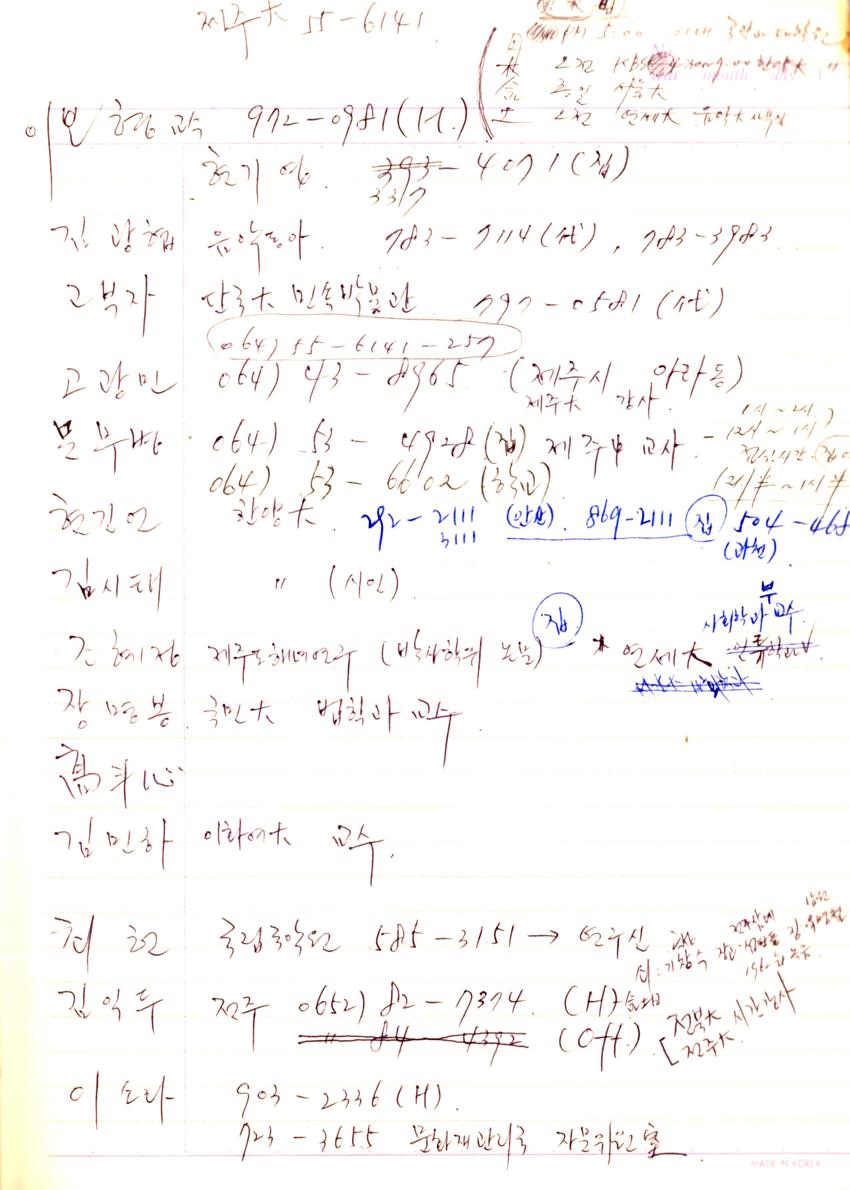 제주大 55-6141
月 PM 5:00
오전 KBS
金 종일 서울大
土 오전 연세大 음악大
이보형 972-0981 (H.)
현기영. 393- 4071 (집)
33/7
김광협 음악동아. 783-7114 (代), 783-3983
고부자 단국大 민속박물관 797-0581 (代)
064) 55-6141-257
고광민 064) 43-8965 (제주시 아라동)
제주大 강사.
문무병 064) 53-4928 (집) 제주中 교사.
1시~2시
12시~1시
064) 53-6602 (학교)
현길언 한양大 292-2111 (안산). 869-2111 집 504-468
3111
(과천)
김시태 " (시인).
조혜정 제주도해녀연구 (박사학위 논문) 집 * 연세大
사회학과 부교수.
장명봉 국민大 법학과 교수.
高斗心
김민하 이화여大 교수.
최헌 국립국악원 585-3151 →
김익두 전주 0652) 82-7374. (H)
" 84 4392 (Off.) [전북大 시간강사
전주大.
이소라 903-2336 (H).
723-3655 문화재관리국 자문위원室
MADE IN KOREA